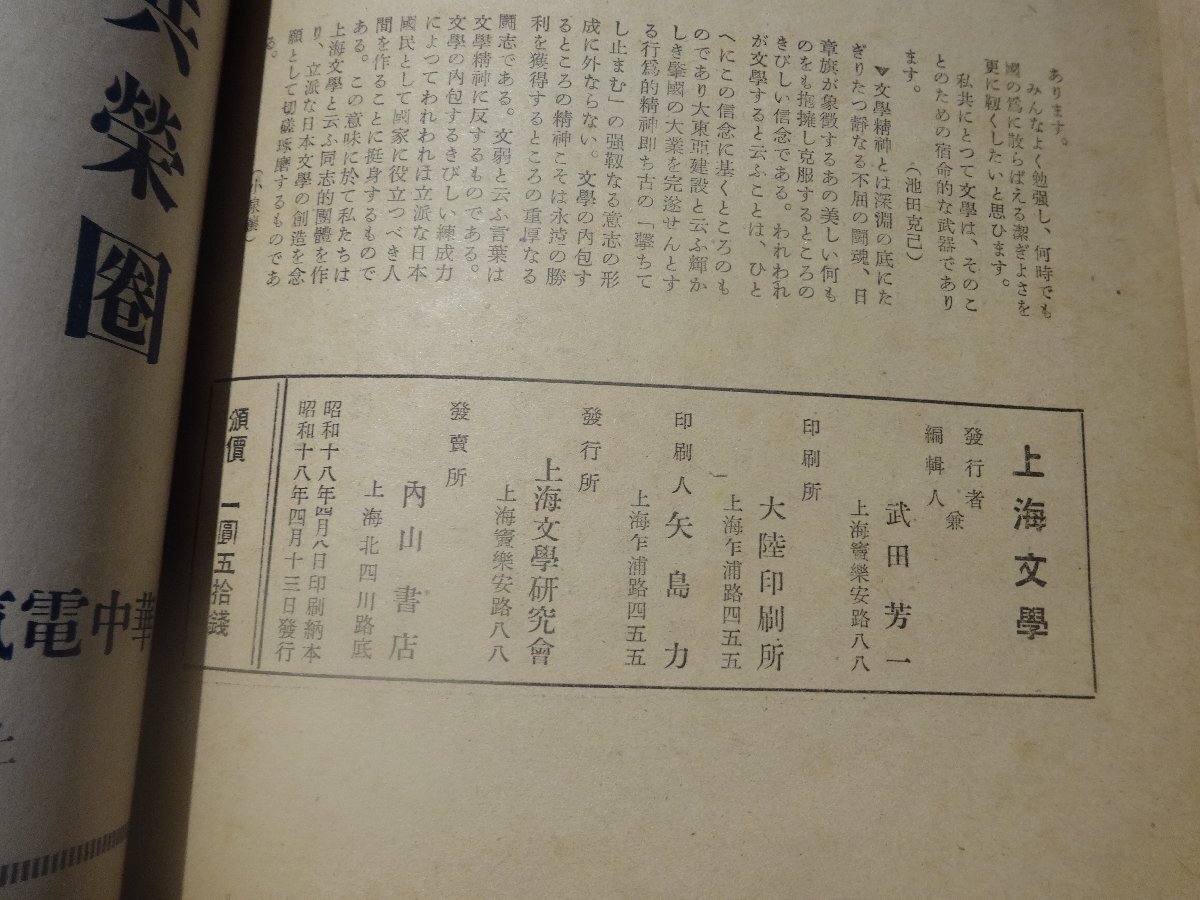 あります。
みんなよく勉强し、何時でも
國の爲に散らばえる潔ぎよさを
更に靱くしたいと思ひます。
私共にとつて文學は、そのこ
とのための宿命的な武器であり
ます。
（池田克己）
▼文學精神とは深淵の底にた
ぎりたつ靜なる不屈の鬪魂、日
章旗が象徴するあの美しい何も
のをも抱擁し克服するところの
きびしい信念である。われわれ
が文學すると云ふことは、ひと
へにこの信念に基くところのも
のであり大東亞建設と云ふ輝か
しき肇國の大業を完遂せんとす
る行爲的精神即ち古の「擊ちて
し止まむ」の强靱なる意志の形
成に外ならない。文學の內包す
るところの精神こそは永遠の勝
利を獲得するところの重厚なる
鬪志である。文弱と云ふ言葉は
文學精神に反するものである。
文學の內包するきびしい練成力
によつてわれわれは立派な日本
國民として國家に役立つべき人
間を作ることに挺身するもので
ある。この意味に於て私たちは
上海文學と云ふ同志的團體を作
り、立派な日本文學の創造を念
願として切磋琢磨するものであ
る。
上海文學
發行者
兼
編輯人
武田芳一
上海竇樂安路八八
印刷所
大陸印刷所
上海乍浦路四五五
印刷人
矢島力
上海乍浦路四五五
發行所
上海文學硏究會
上海竇樂安路八八
發賣所
內山書店
上海北四川路底
昭和十八年四月八日印刷納本
昭和十八年四月十三日發行
頒價 一圓五拾錢
共榮圈
華中電氣